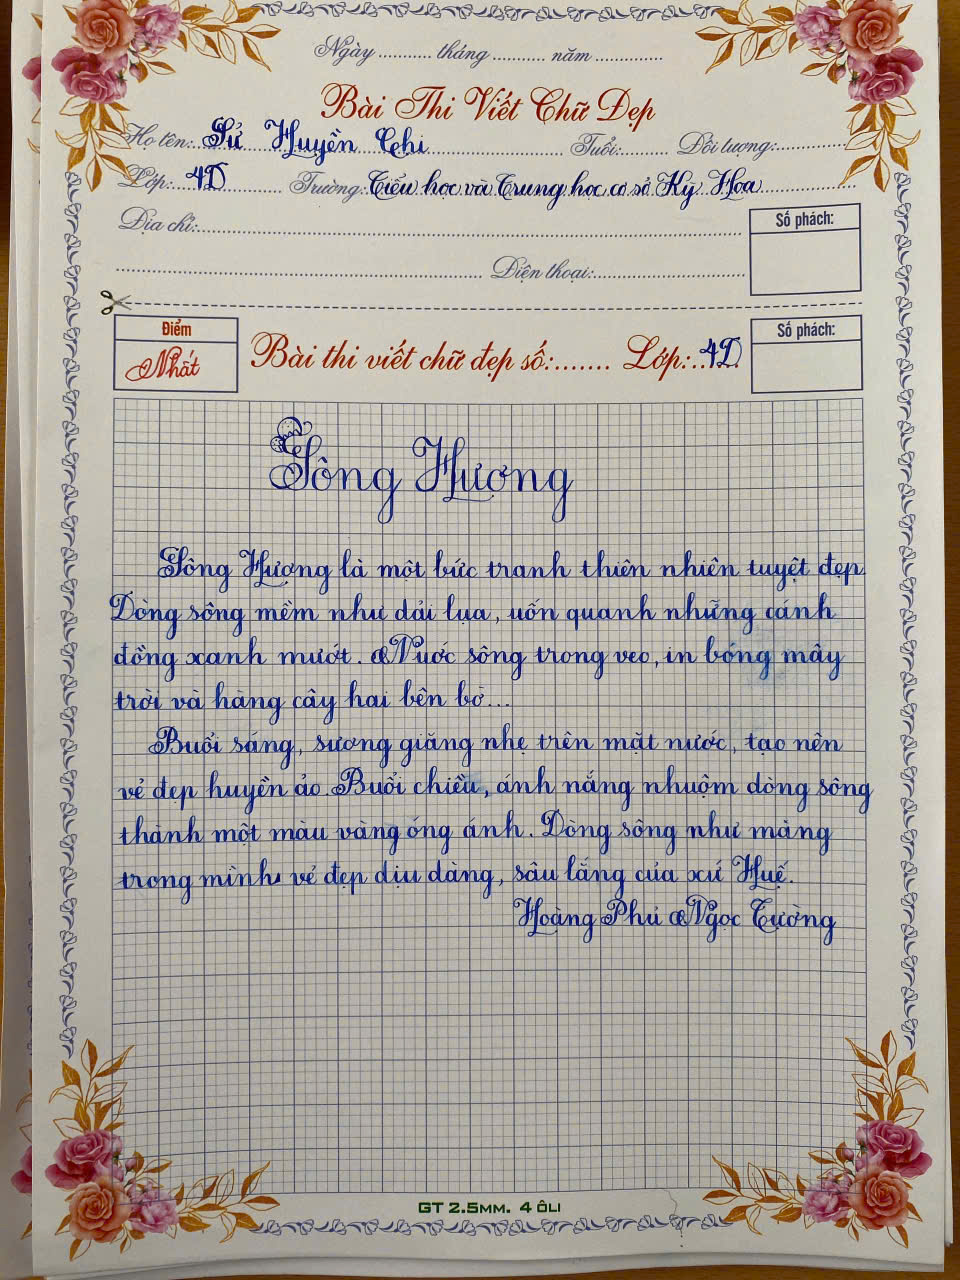 Ngày ........... tháng ........... năm ..............
Bài Thi Viết Chữ Đẹp
Họ tên: Sử Huyền Chi Tuổi: Đối tượng:
Lớp: 4D Trường: Tiểu học và Trung học cơ sở Kỳ Hoa
Địa chỉ: Số phách:
Điện thoại:
Điểm Số phách:
Nhất Bài thi viết chữ đẹp số:....... Lớp: 4D
Sông Hương
Sông Hương là một bức tranh thiên nhiên tuyệt đẹp.
Dòng sông mềm như dải lụa, uốn quanh những cánh
đồng xanh mướt. Nước sông trong veo, in bóng mây
trời và hàng cây hai bên bờ...
Buổi sáng, sương giăng nhẹ trên mặt nước, tạo nên
vẻ đẹp huyền ảo. Buổi chiều, ánh nắng nhuộm dòng sông
thành một màu vàng óng ánh. Dòng sông như mang
trong mình vẻ đẹp dịu dàng, sâu lắng của xứ Huế.
Hoàng Phủ Ngọc Tường
GT 2.5MM. 4 ÔLI